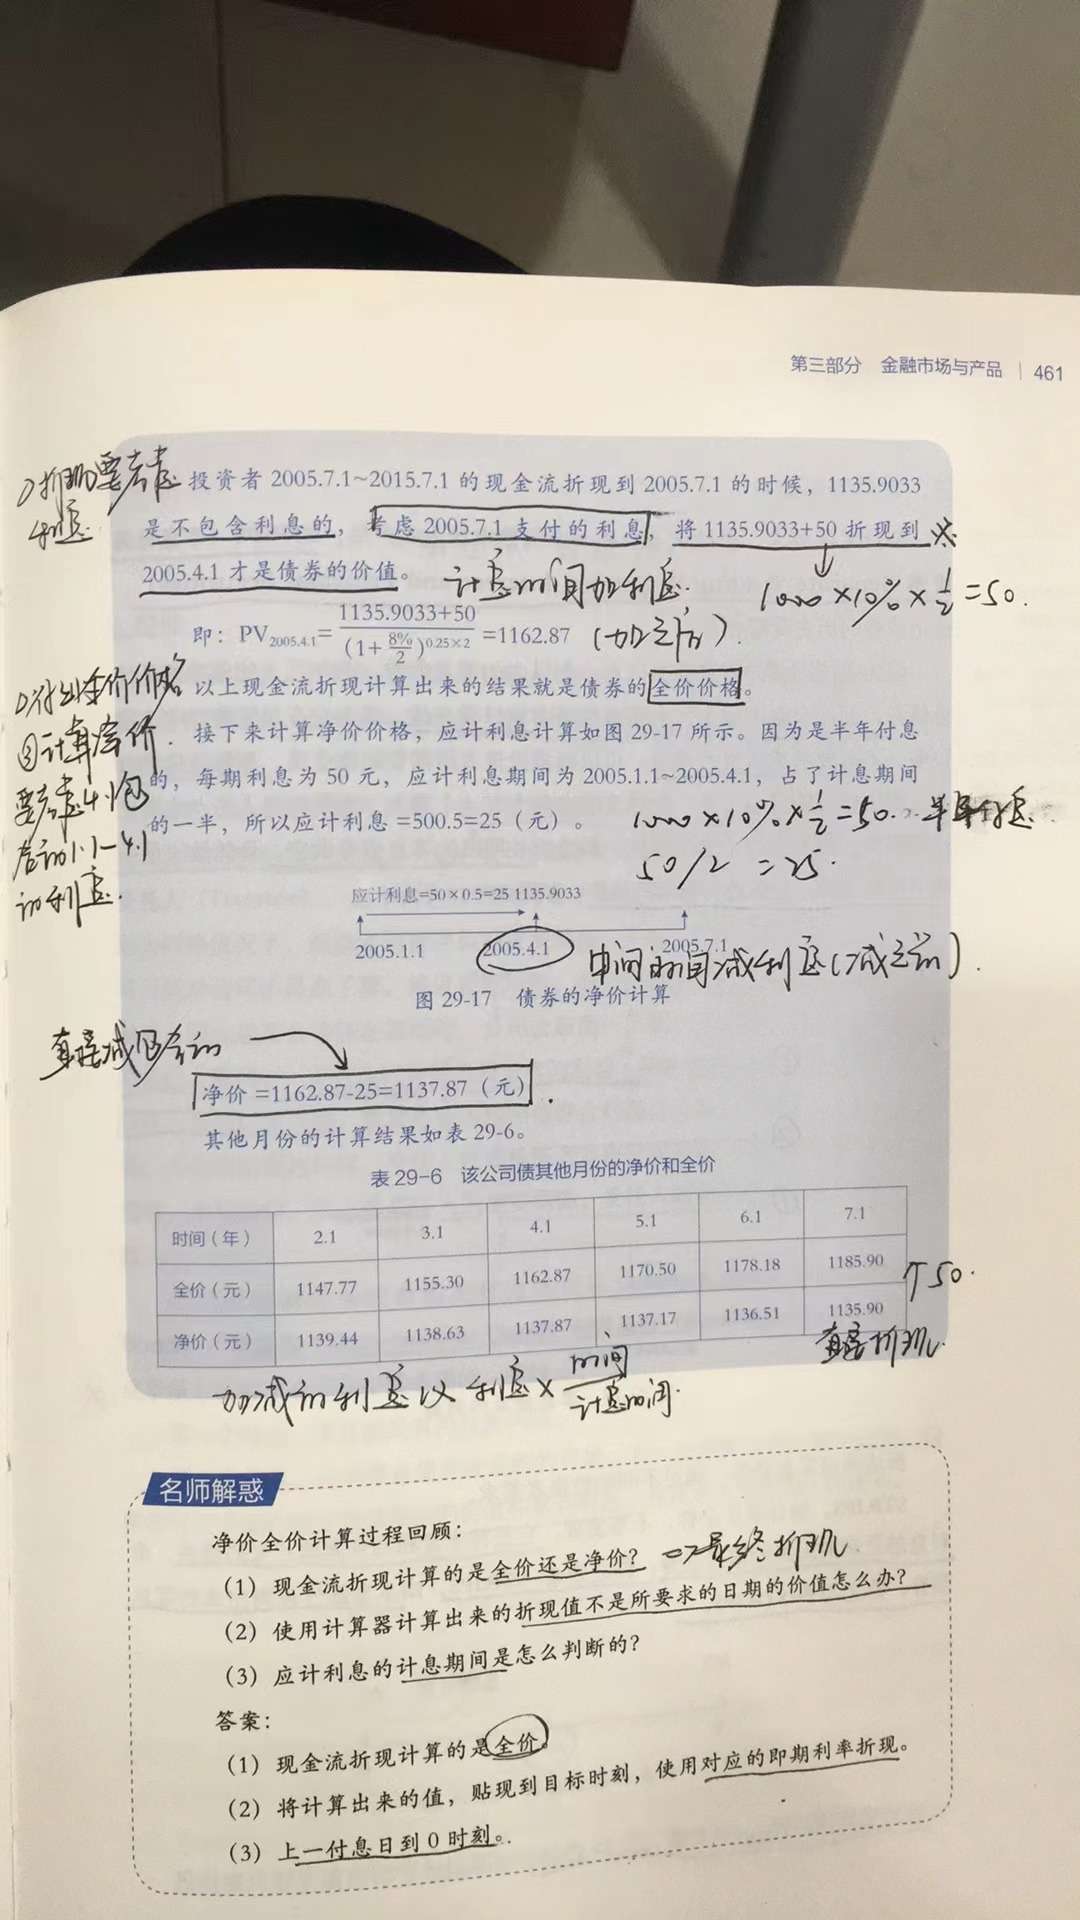 第三部分 金融市场与产品 | 461
①折现要考虑
利息.
投资者 2005.7.1~2015.7.1 的现金流折现到 2005.7.1 的时候，1135.9033
是不包含利息的，考虑 2005.7.1 支付的利息，将 1135.9033+50 折现到
2005.4.1 才是债券的价值。
计息时间加利息.
1000×10%×1/2=50.
即：PV2005.4.1= 1135.9033+50 / (1+8%/2)^0.25×2 =1162.87
(加之后).
以上现金流折现计算出来的结果就是债券的全价价格。
接下来计算净价价格，应计利息计算如图 29-17 所示。因为是半年付息
的，每期利息为 50 元，应计利息期间为 2005.1.1~2005.4.1，占了计息期间
的一半，所以应计利息 =500.5=25（元）。
全价价格
③计算净价.
要考虑4.1包
含的1.1—4.1
的利息.
1000×10%×1/2=50. 半年付息.
50/2 =25.
应计利息=50×0.5=25 1135.9033
2005.1.1 2005.4.1 2005.7.1
中间时间减利息(减之前).
图 29-17 债券的净价计算
直接减包含的
净价 =1162.87-25=1137.87（元）
其他月份的计算结果如表 29-6。
表 29-6 该公司债其他月份的净价和全价
时间（年） 2.1 3.1 4.1 5.1 6.1 7.1
全价（元） 1147.77 1155.30 1162.87 1170.50 1178.18 1185.90
↑50.
净价（元） 1139.44 1138.63 1137.87 1137.17 1136.51 1135.90
直接折现.
加减的利息以 利息× 时间/计息时间.
名师解惑
净价全价计算过程回顾：
（1）现金流折现计算的是全价还是净价？
最终折现.
（2）使用计算器计算出来的折现值不是所要求的日期的价值怎么办？
（3）应计利息的计息期间是怎么判断的？
答案：
（1）现金流折现计算的是全价。
（2）将计算出来的值，贴现到目标时刻，使用对应的即期利率折现。
（3）上一付息日到 0 时刻。